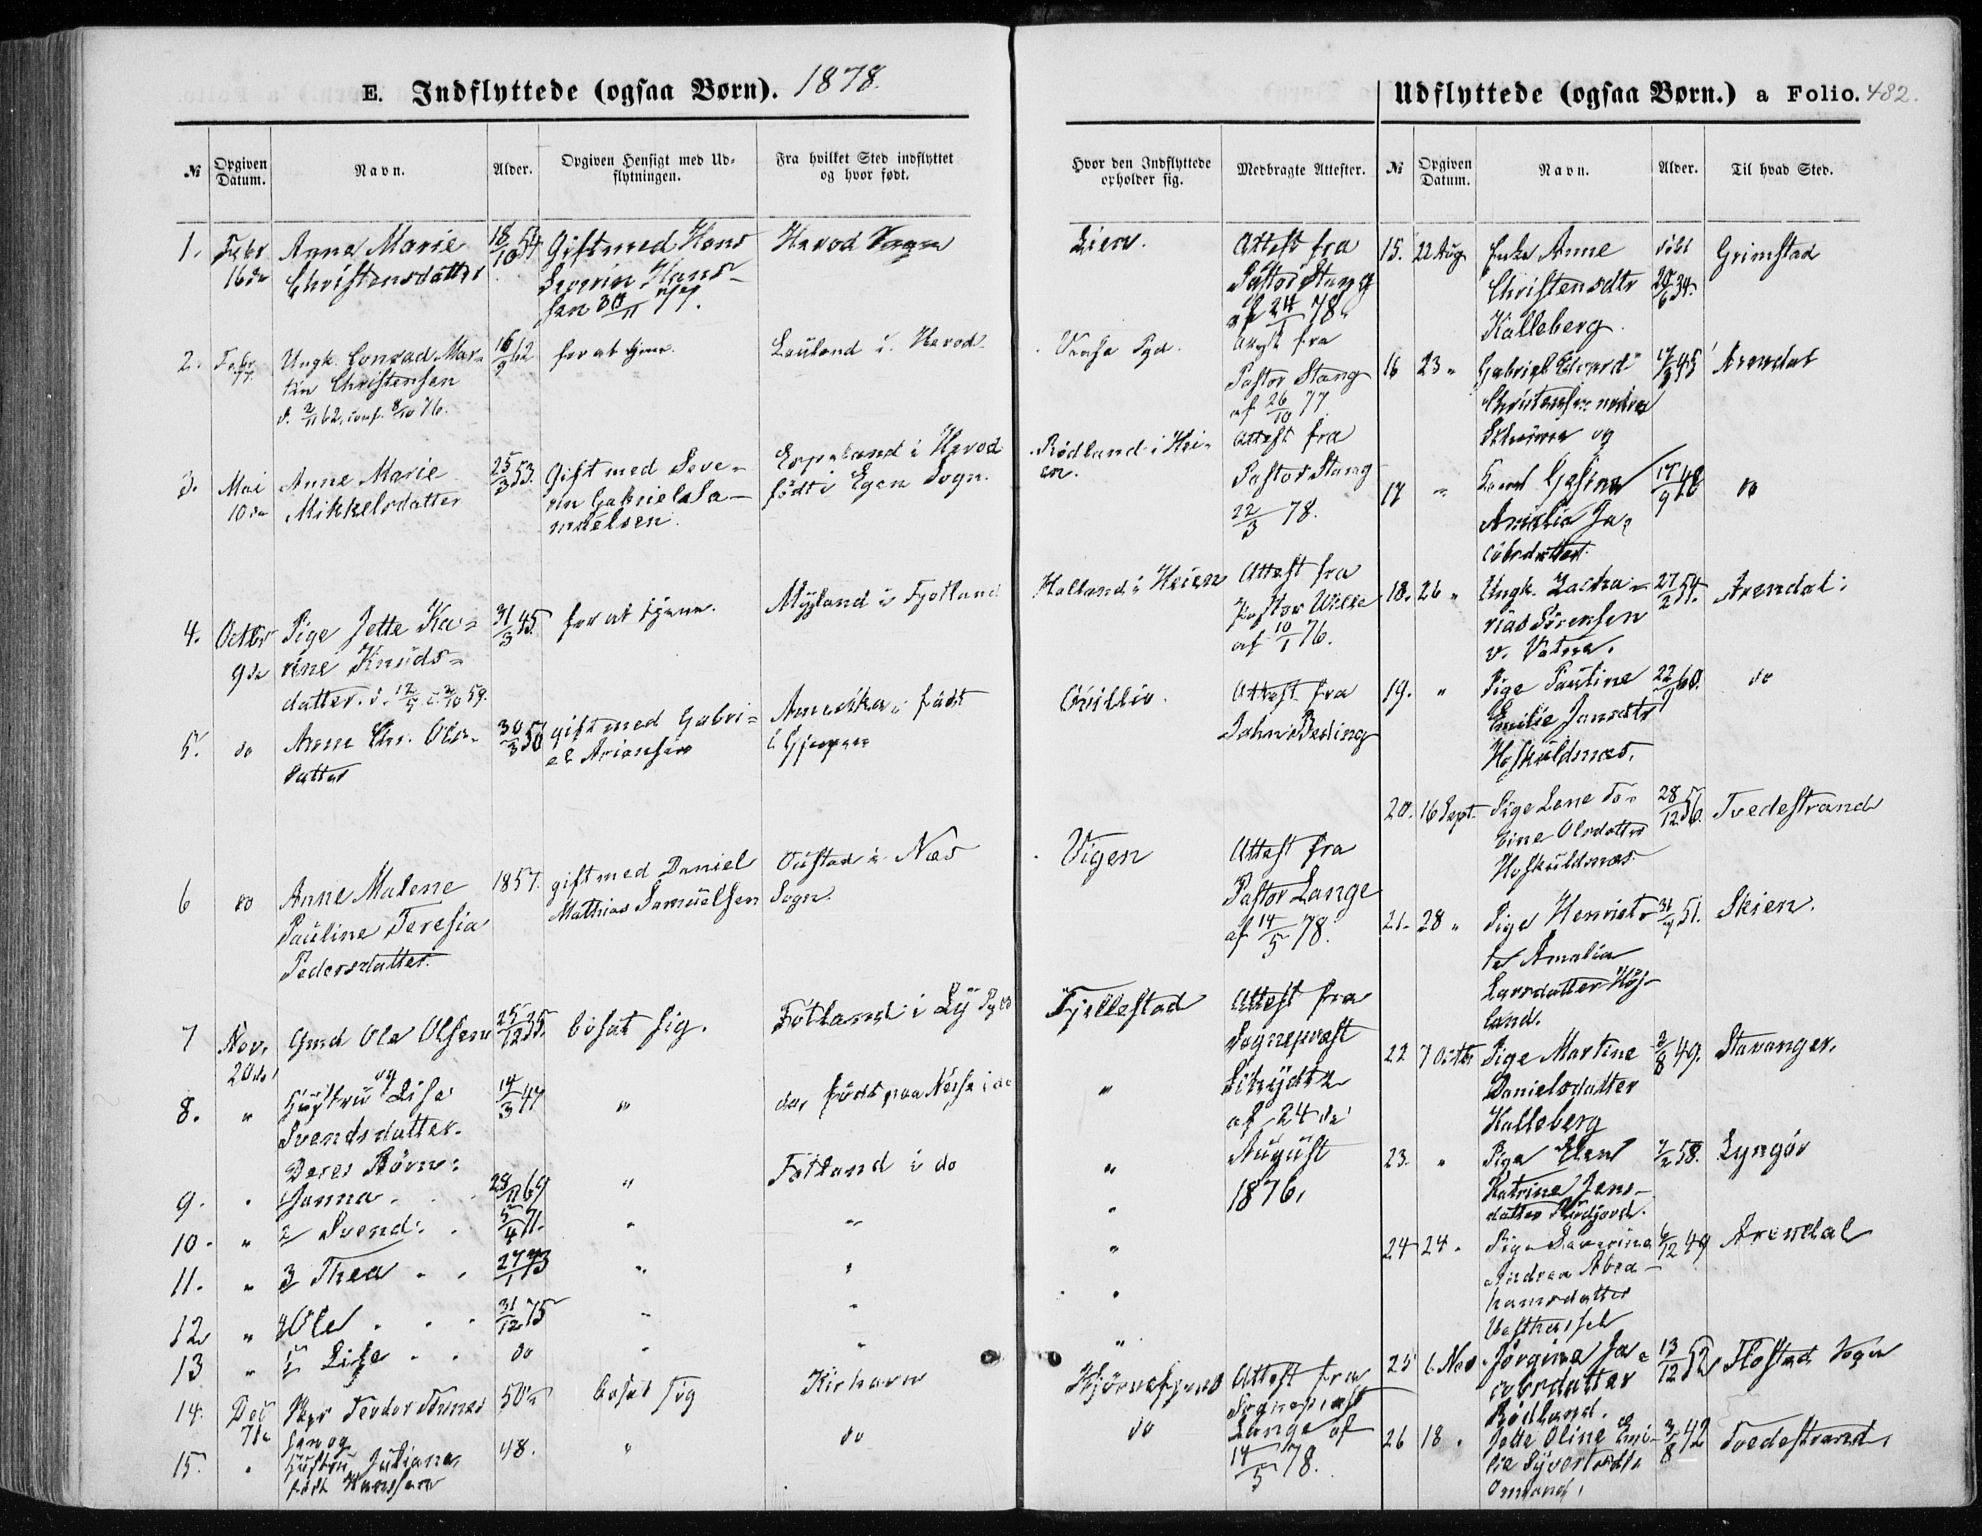 E. Indflyttede (ogsaa Børn). 1878.
№ Opgiven Datum. Navn. Alder. Opgiven Hensigt med Udflytningen. Fra hvilket Sted indflyttet og hvor født.
Hvor den Indflyttede opholder sig. Medbragte Attester.
1. Febr 16de Anna Marie Christensdatter 18/10 54 Gift med Hans Severin Hansen 30/11 77. Herod Sogn
Lien. Attest fra Pastor Stang af 24/1 78.
2. Febr Ungk. Conrad Martin Christensen d. 2/11 62, conf. 8/10 76. 16/9 62 for at tjene. Lauland i Herod
Attest fra Pastor Stang af 26/10 77.
3. Mai 10de Anne Marie Mikkelsdatter 25/3 53. Gift med Severin Gabriel Samuelsen. Espeland i Herod født i Egen Sogn.
Rødland i Heien. Attest fra Pastor Stang 22/3 78.
4. Octbr 9de Pige Jette Karine Knudsdatter. 31/3 45. for at tjene. Mygland i Fjotland
Halland i Heien Attest fra Pastor Wille af 10/1 76.
5. do Anne Chr. Olsdatter 30/3 50 gift med Gabriel Ariansen Amerika, født i
Attest fra John
6 do Anne Malene Pauline Teresia Pedersdatter. 1857. gift med Daniel Mathias Samuelsen i Næs Sogn.
Vigen Attest fra Pastor Lange af 14/5 78.
7 Nov. 20de Gmd Ole Olsen og 25/12 35. bosat sig. Fotland i Ly Pgld
Tjellestad Attest fra Sognepræst af 24de August 1876.
8. " Hustru Lise Svendsdatter. 14/3 47 " do, født paa i do "
Deres Børn:
9. " 1 Janna 28/11 69 " Fotland i do "
10. " 2 Svend 5/4 71. " " "
11. " 3 Thea 27/1 73 " " "
12 " 4 Ole 31/12 75 " " "
13 " 5 Lise do " " "
14. Dec 7de Teodor og 50 bosat sig Kirhavn
Attest fra Sognepræst Lange af 14/5 78.
15. " Hustru Juliane født Hansen 48. " do do
Udflyttede (ogsaa Børn.) a Folio. 482.
№ Opgiven Datum. Navn. Alder. Til hvad Sted.
15. 22 Aug Enke Anne Christensdtr Kalleberg. 20/6 34. Grimstad
16 23 " Gabriel Edvard Christensen og 17/3 45 Arendal
17 " Gesine Amalia Jacobsdatter. 17/9 48 do
18. 26 " Ungk. Zacharias Sørensen v. Vatne. 27/2 54. Arendal.
19. " Pige Pauline Emilie Jansdtr Høskuldnæs. 22/9 60. do
20. 16 Sept. Pige Lene Toline Olsdatter Høskuldnæs. 28/12 56. Tvedestrand
21. 28 " Pige Henriette Amalia Larsdatter Høiland. 51. Skien.
22 7 Octbr Pige Martine Danielsdatter Kalleberg 3/8 49. Stavanger.
23. " Pige Elen Katrine Jensdatter 58. Lyngør
24 24 " Pige Severine Andrea Abrahamsdatter Vesthassel 6/12 49 Arendal
25 6 Nov. Jørgine Jacobsdatter Rødland. 13/12 52. Flostad Sogn
26 18 " Jette Oline Emilie Syvertsdtr 3/8 42 Tvedestrand.